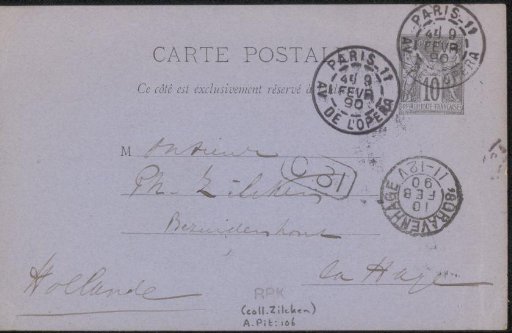 CARTE POSTALE
Ce côté est exclusivement réservé à
PARIS 11
9
FEVR
90
AV DE L'OPERA
PARIS 11
9
FEVR
90
AV DE L'OPERA
10
REPUBLIQUE FRANÇAISE
Monsieur
Ph. Zilcken
Bezuidenhout
la Haye
Hollande
'SGRAVENHAGE
10
FEB
90
11-12V
RPK
(coll. Zilcken)
A. Pit: 106